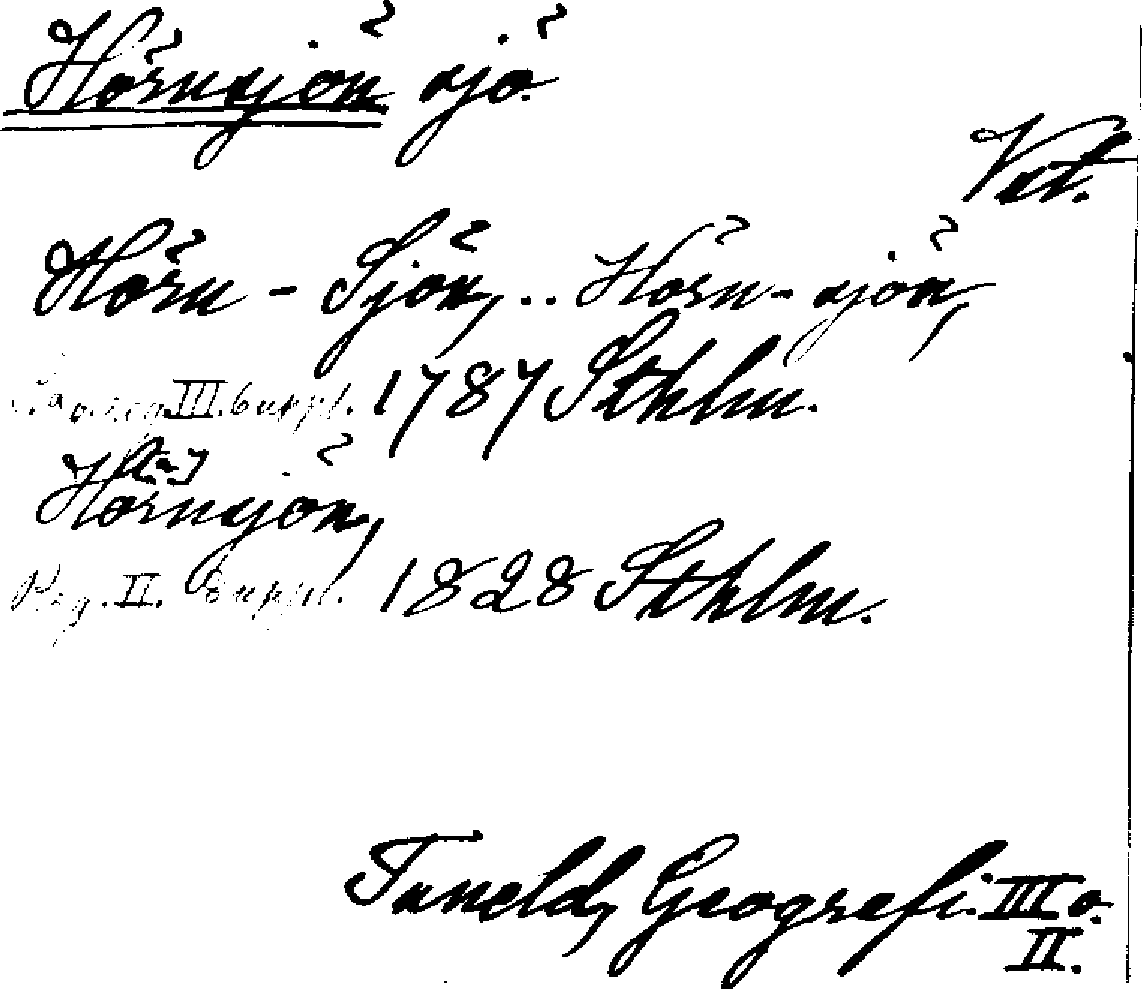 Hörnsjön sjö.
Vbt.
Hörn - Sjön, .. Hörn - sjön,
reg. III. suppl. 1787 Sthlm.
Hörnsjön,
Reg. II. suppl. 1828 Sthlm.
Tuneld, Geografi. III o.
II.